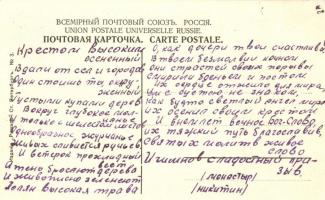 ВСЕМІРНЫЙ ПОЧТОВЫЙ СОЮЗЪ. РОССІЯ.
UNION POSTALE UNIVERSELLE RUSSIE.
ПОЧТОВАЯ КАРТОЧКА. CARTE POSTALE.
Крестом высоким
осененный
Вдали от сел и города
Один стоишь ты окру-
женный
Густыми купами дерев
Вокруг глубокое мол-
чанье
и только с шелестом листов
Однообразное журчанье
живых сливается ручьев.
И ветерок прохладный
веет
И тень бросают дерева
И живописно зеленеет
Полян высокая трава
О, как дочери твои счастливы
В твоем безмолвии ночном
Они страстей своих порывы
Смирили бденьем и постом
Их сердце отжило для мира
Ум с суетой не знаком,
Как будто светлый ангел мира
Их осенил своим крестом
И внемлет вечное Бог-Слово,
их тяжкий путь благословив,
Святых молитв живое
слово
И гимнов сладостный при-
зыв.
(монастырь)
(Никитин)